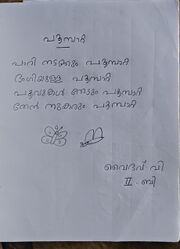 പൂമ്പാറ്റ
പാറി നടക്കും പൂമ്പാറ്റ
ഭംഗിയുള്ള പൂമ്പാറ്റ
പൂവുകൾ തേടും പൂമ്പാറ്റ
തേൻ നുകരും പൂമ്പാറ്റ
വൈദവ് വി
II ബി